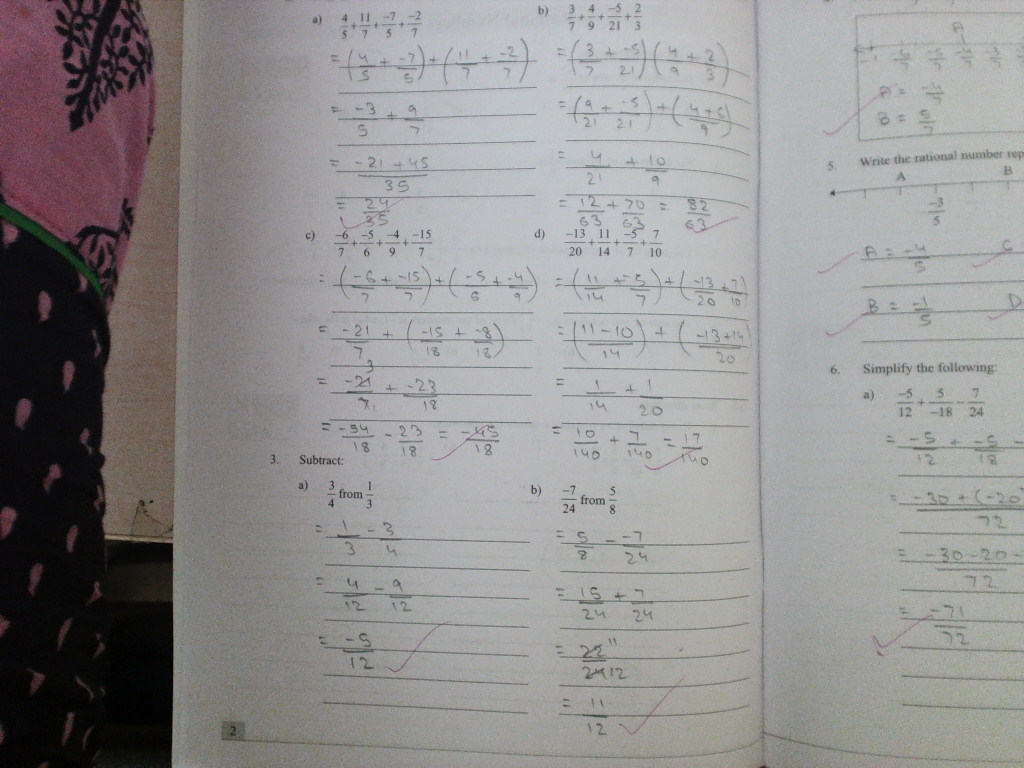 a) 4/5 + 11/7 + -7/5 + -2/7
= (4/5 + -7/5) + (11/7 + -2/7)
= -3/5 + 9/7
= -21 + 45/35
= 24/35
b) 3/7 + 4/9 + -5/21 + 2/3
= (3/7 + -5/21) (4/9 + 2/3)
= (9/21 + -5/21) + (4+6/9)
= 4/21 + 10/9
= 12/63 + 70/63 = 82/63
c) -6/7 + -5/6 + -4/9 + -15/7
= (-6/7 + -15/7) + (-5/6 + -4/9)
= -21/7 + (-15/18 + -8/18)
= -21/7 3 1 + -23/18
= -54/18 - 23/18 = -45/18
d) -13/20 + 11/14 + -5/7 + 7/10
= (11/14 + -5/7) + (-13/20 + 7/10)
= (11-10/14) + (-13+14/20)
= 1/14 + 1/20
= 10/140 + 7/140 = 17/140
3. Subtract:
a) 3/4 from 1/3
= 1/3 - 3/4
= 4/12 - 9/12
= -5/12
b) -7/24 from 5/8
= 5/8 - -7/24
= 15/24 + 7/24
= 22/24 11 12
= 11/12
2
A
A =
B = 5/7
5. Write the rational number rep
A B
-3/5
A = -4/5 C
B = -1/5 D
6. Simplify the following:
a) -5/12 + 5/-18 - 7/24
= -5/12 + -5/18 -
= -30 + (-20)/72
= -30-20-/72
= -71/72